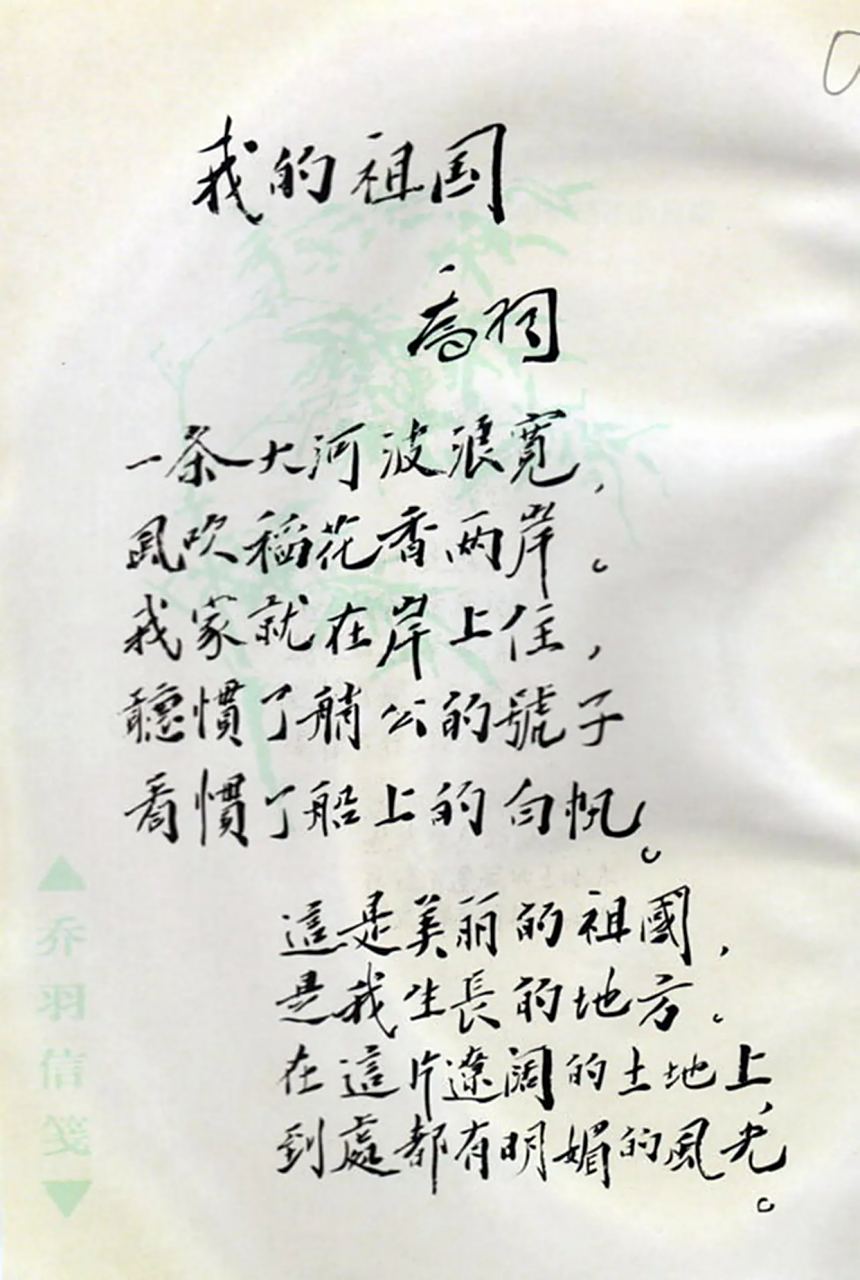 我的祖国
喬羽
一条大河波浪寬，
風吹稻花香兩岸。
我家就在岸上住，
聽慣了艄公的號子
看慣了船上的白帆。
這是美丽的祖國，
是我生長的地方。
在這片遼阔的土地上，
到處都有明媚的風光。
乔羽信笺